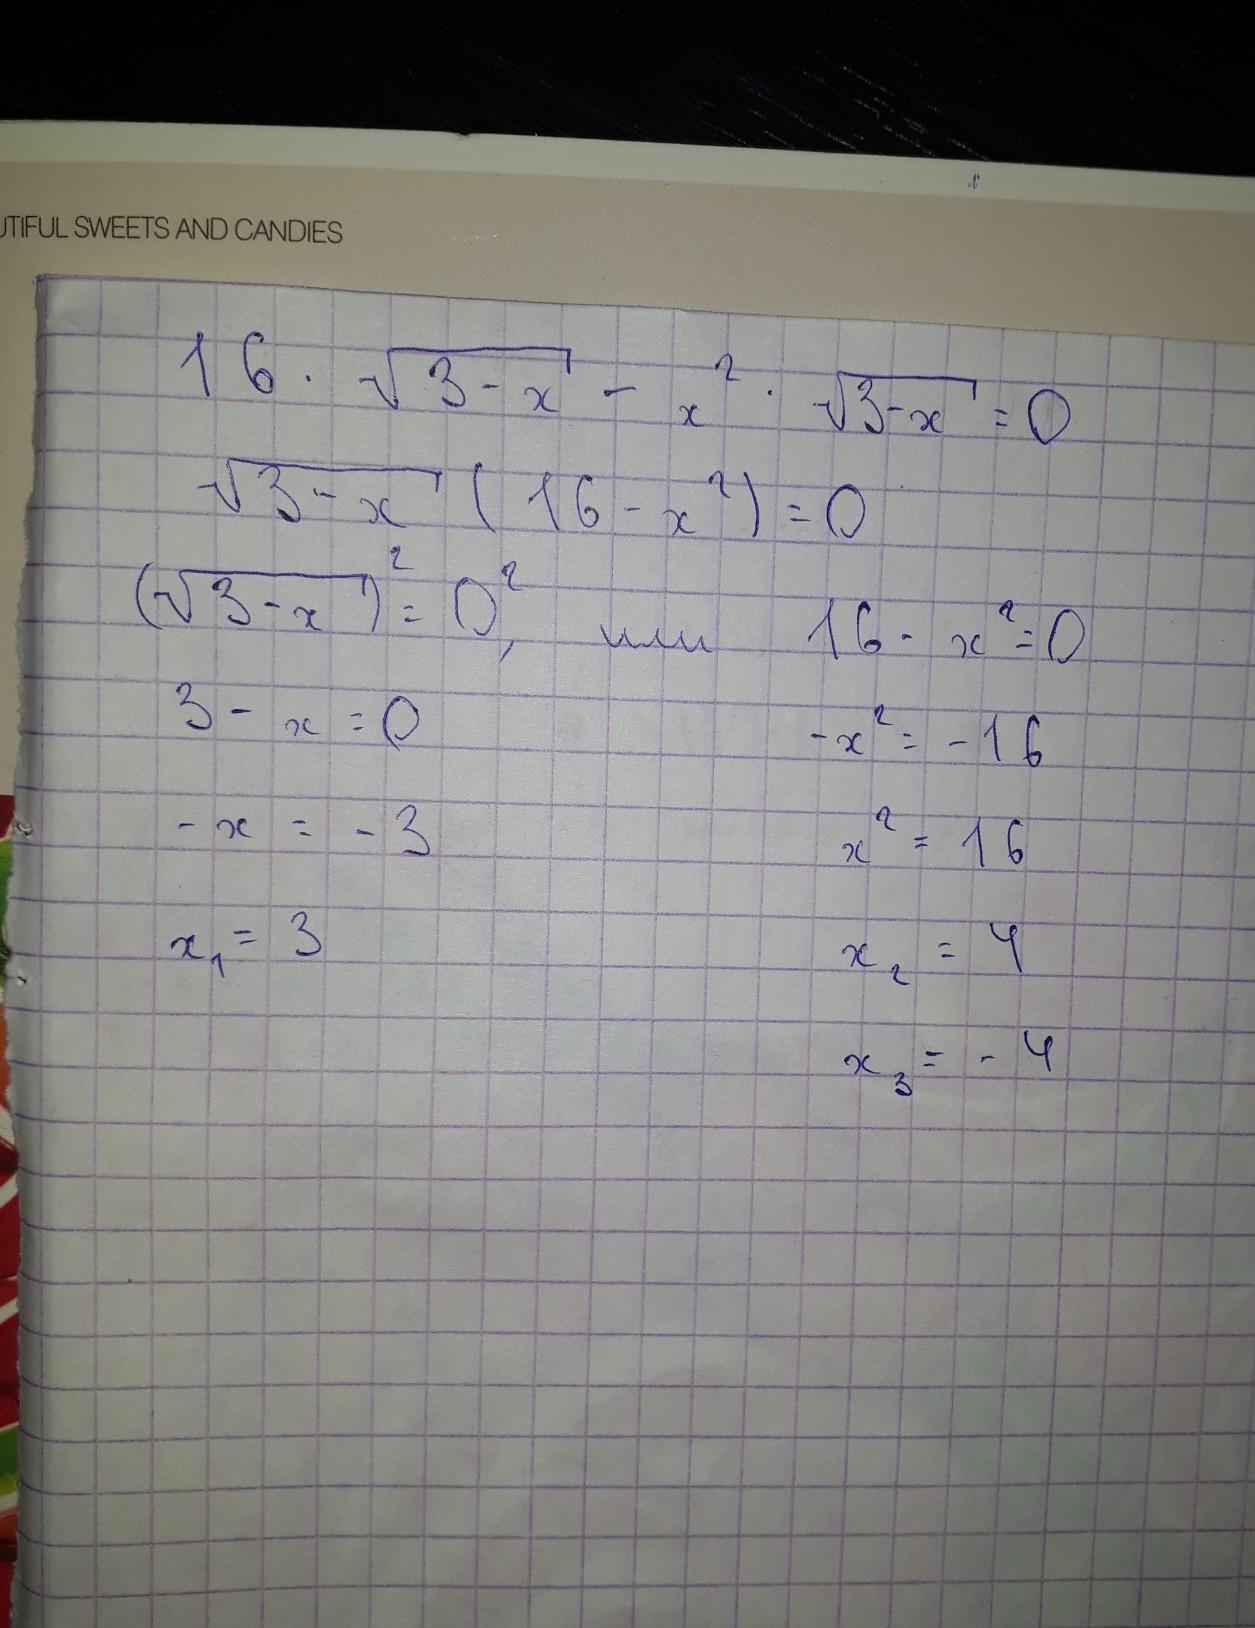 UTIFUL SWEETS AND CANDIES
16 · √3-x - x² · √3-x = 0
√3-x (16 - x²) = 0
(√3-x)² = 0², или 16 - x² = 0
3 - x = 0 -x² = -16
-x = -3 x² = 16
x₁ = 3 x₂ = 4
x₃ = -4